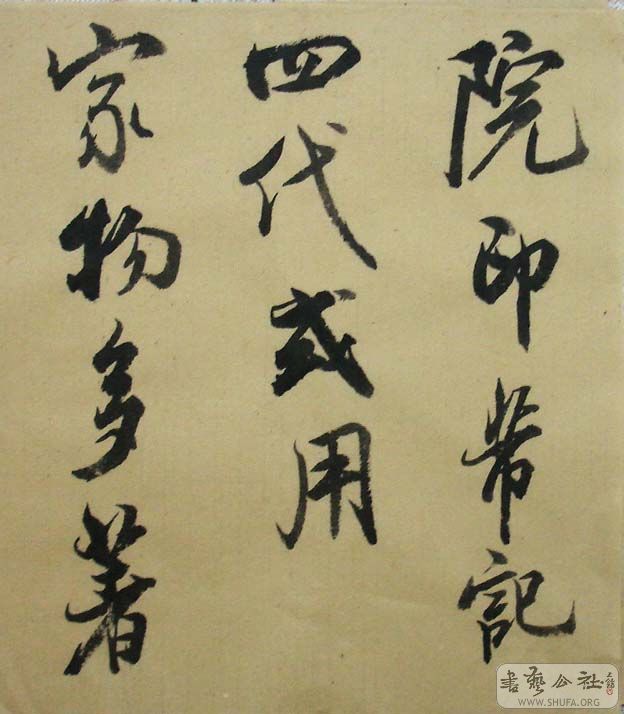 院印芾記
四代或用
家物多著
書藝公社
WWW.SHUFA.ORG